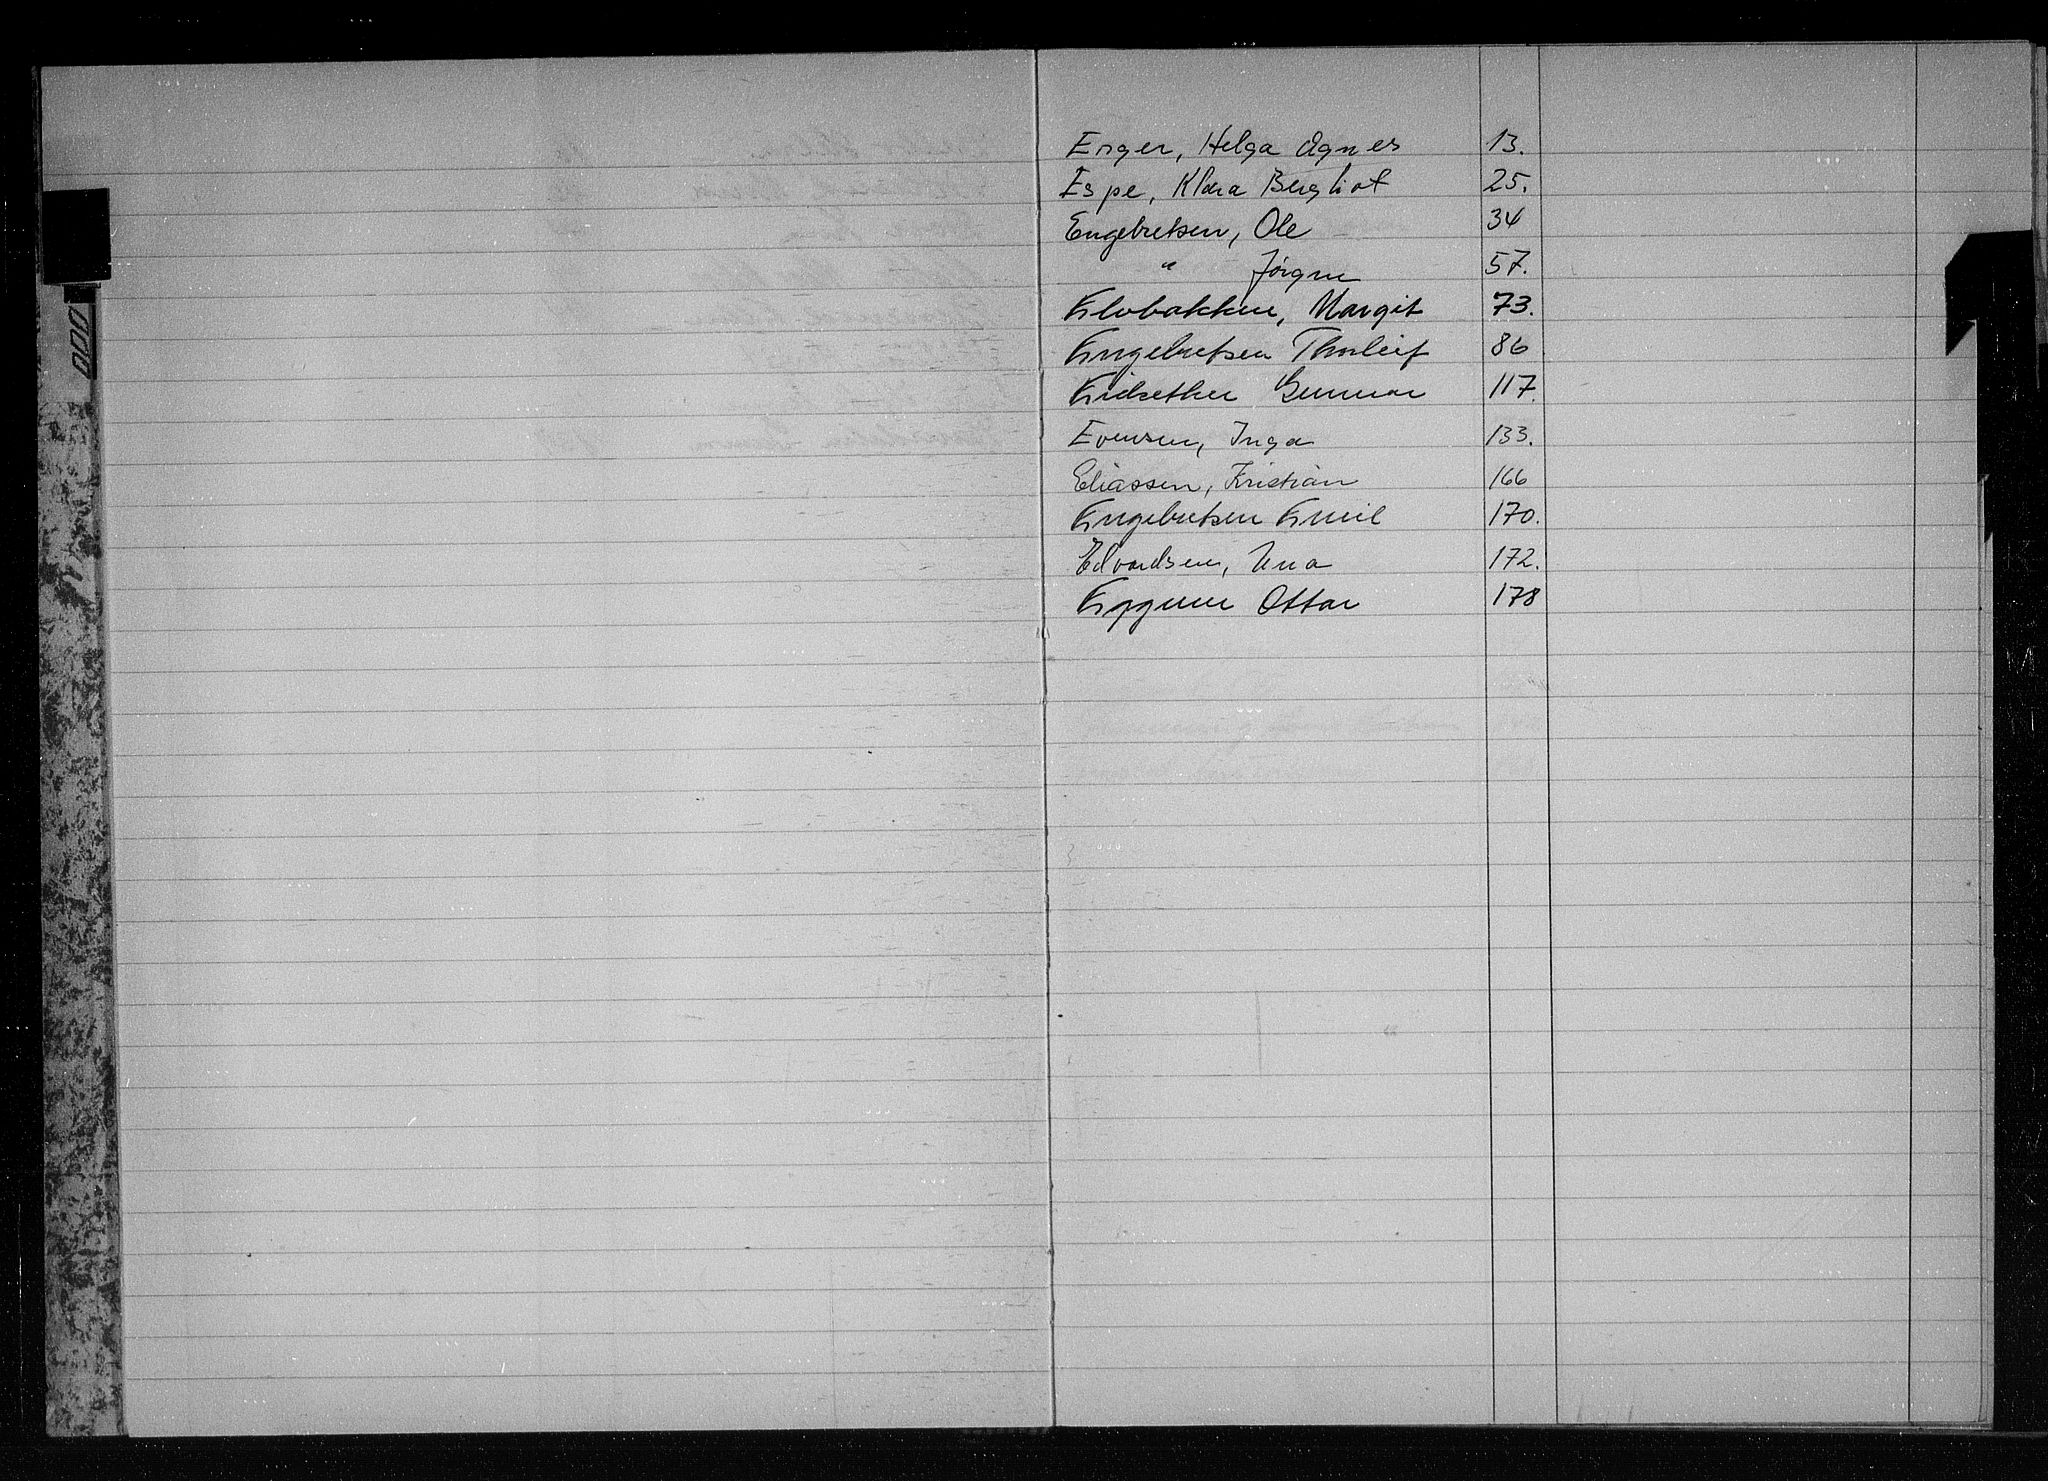 Enger, Helga Agnes 13.
Espe, Klara Bergliot 25.
Engebretsen, Ole 34
" Jörgen 57.
Elvbakken, Margit 73.
Engebretsen Thorleif 86
Eidsether Gunnar 117.
Evensen, Inga 133.
Eliassen, Kristian 166
Engebretsen Emil 170.
Edvardsen, Una 172.
Eggum Ottar 178